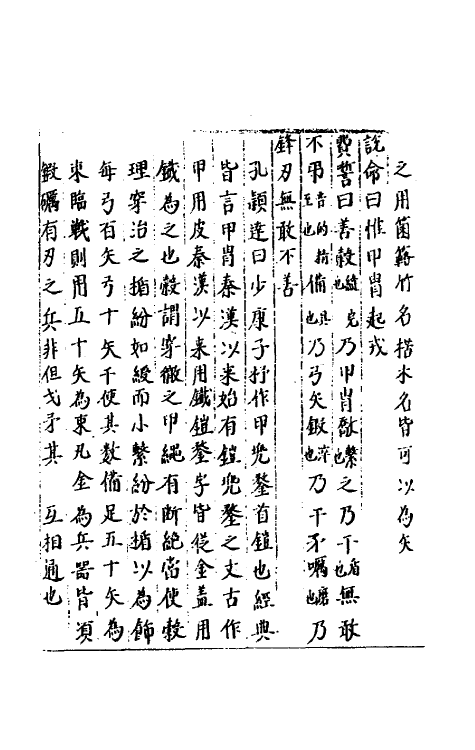 之用箘簬竹名楛木名皆可以為矢
說命曰惟甲冑起戎
費誓曰善敹縫完也乃甲冑敿繫也之乃干盾也無敢
不弔音的至也精備具也乃弓矢鍛淬也乃干矛礪磨也乃
鋒刃無敢不善
孔頴達曰少康子抒作甲兠鍪首鎧也經典
皆言甲冑秦漢以来始有鎧兠鍪之文古作
甲用皮秦漢以来用鐵鎧鍪字皆從金盖用
鐵為之也敹謂穿徹之甲繩有斷絕當使敹
理穿治之楯紛如綬而小繫紛於楯以為飾
每弓百矢弓十矢千使其數備足五十矢為
束臨戰則用五十矢為束凡金為兵器皆須
鍛礪有刃之兵非但戈矛其 互相通也